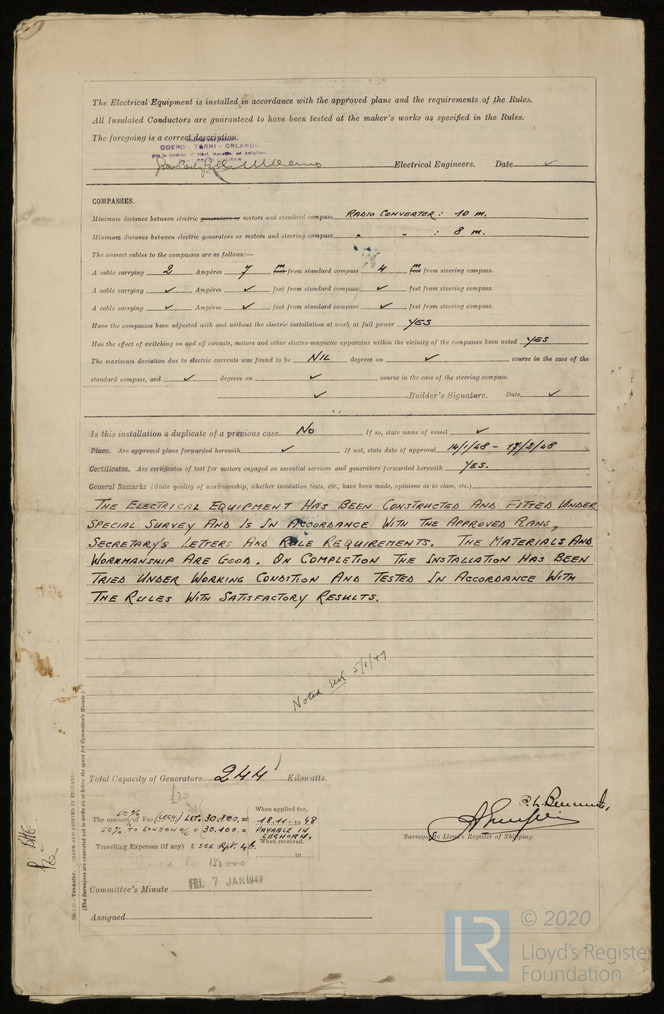 The Electrical Equipment is installed in accordance with the approved plans and the requirements of the Rules.
All Insulated Conductors are guaranteed to have been tested at the maker's works as specified in the Rules.
The foregoing is a correct description.
ODERO - TERNI - ORLANDO
Electrical Engineers. Date ✓
COMPASSES.
Minimum distance between electric generators or motors and standard compass RADIO CONVERTER: 10 m.
Minimum distance between electric generators or motors and steering compass " " : 8 m.
The nearest cables to the compasses are as follows:—
A cable carrying 2 Ampères 7 m from standard compass 4 m from steering compass.
A cable carrying ✓ Ampères ✓ feet from standard compass, ✓ feet from steering compass.
A cable carrying ✓ Ampères ✓ feet from standard compass ✓ feet from steering compass.
Have the compasses been adjusted with and without the electric installation at work at full power YES
Has the effect of switching on and off circuits, motors and other electro-magnetic apparatus within the vicinity of the compasses been noted YES
The maximum deviation due to electric currents was found to be NIL degrees on ✓ course in the case of the
standard compass, and ✓ degrees on ✓ course in the case of the steering compass.
✓ Builder's Signature. Date ✓
Is this installation a duplicate of a previous case No If so, state name of vessel ✓
Plans. Are approved plans forwarded herewith ✓ If not, state date of approval 14/1/48 - 17/2/48
Certificates. Are certificates of test for motors engaged on essential services and generators forwarded herewith YES.
General Remarks (State quality of workmanship, whether insulation tests, etc., have been made, opinions as to class, etc.)
THE ELECTRICAL EQUIPMENT HAS BEEN CONSTRUCTED AND FITTED UNDER
SPECIAL SURVEY AND IS IN ACCORDANCE WITH THE APPROVED PLANS,
SECRETARY'S LETTERS AND RULE REQUIREMENTS. THE MATERIALS AND
WORKMANSHIP ARE GOOD. ON COMPLETION THE INSTALLATION HAS BEEN
TRIED UNDER WORKING CONDITION AND TESTED IN ACCORDANCE WITH
THE RULES WITH SATISFACTORY RESULTS.
Noted 5/1/49
Total Capacity of Generators 244 Kilowatts.
50%
The amount of Fee (LEGH) Lit. 30.100.= When applied for, 18.11.1948
50% TO LONDON 30.100.= PAYABLE IN LEGHORN.
Travelling Expenses (if any) £ SEE Rpt. 4b. When received.
19
Surveyor to Lloyd's Register of Shipping.
Committee's Minute FRI. 7 JAN 1949
Assigned
(The Surveyors are requested not to write on or below the space for Committee's Minute.)
LR © 2020
Lloyd's Register
Foundation